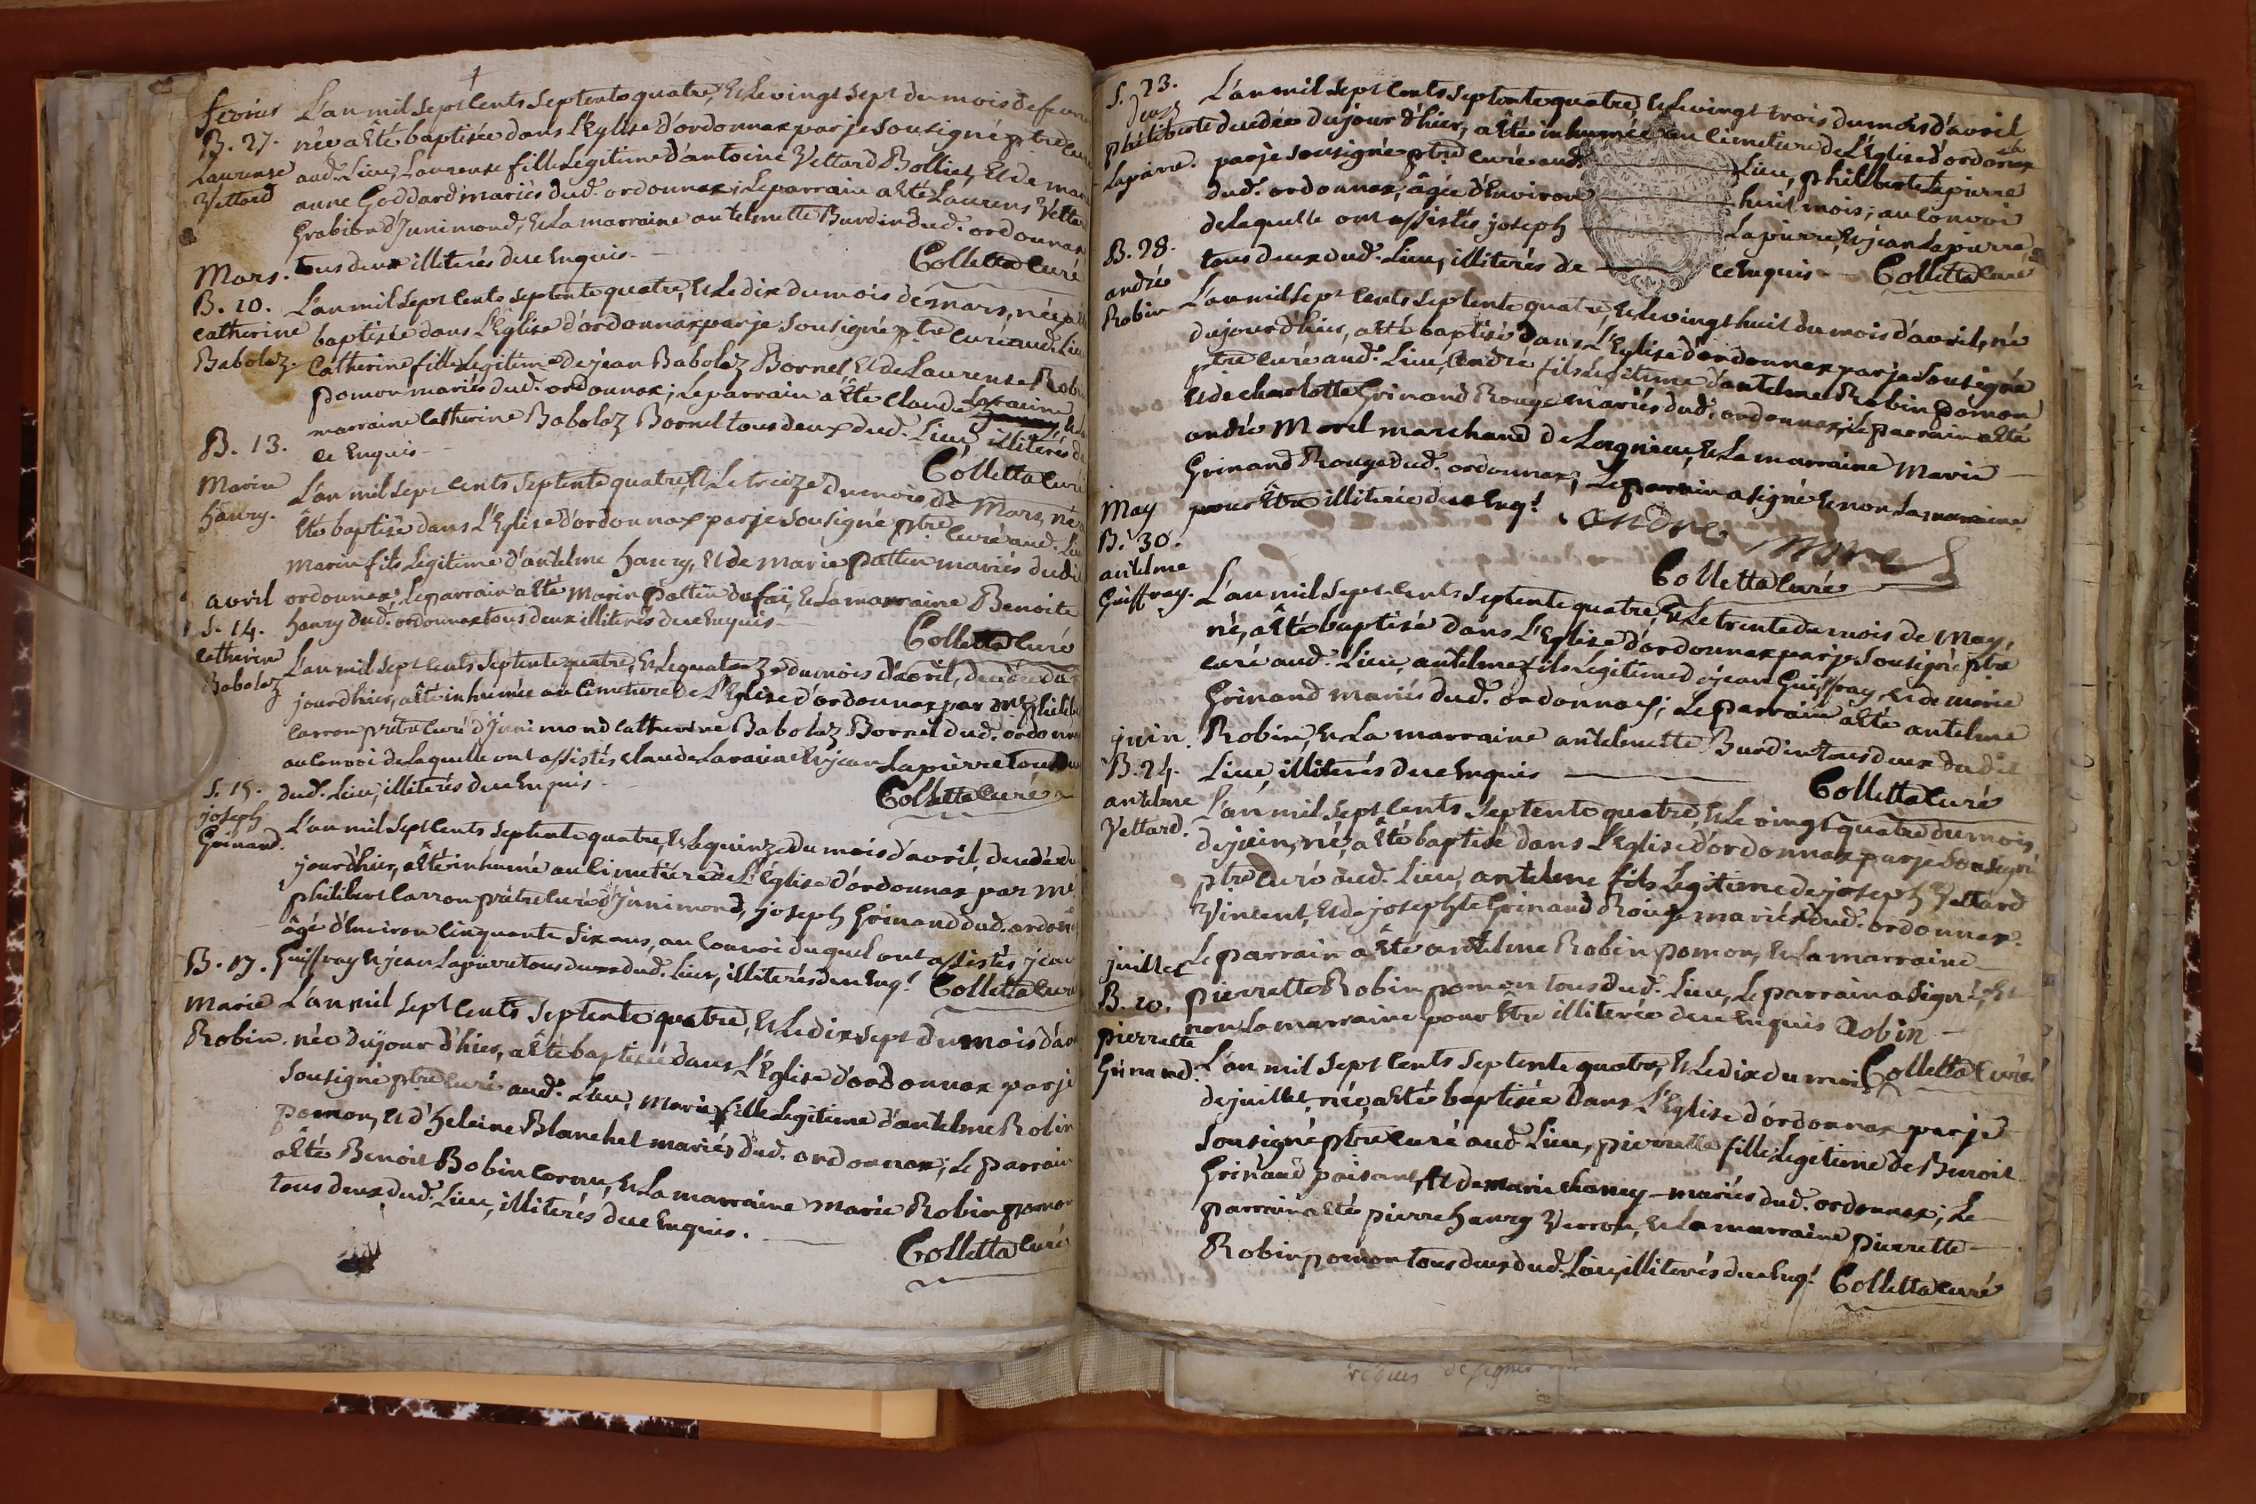 fevrier L'an mil sept cents septente quatre, et le vingt sept du mois de fevrier
B. 27. née a êté baptisée dans l'Eglise d'ordonnax par je sousigné ptre curé
Laurense aud. Lieu, Laurense fille legitime d'antoine Vettard Bolliet, et de
Vettard anne Goddard mariés dud. ordonnax; le parrain a êté Laurens Vettard
Grabion d'Junimond, et la marraine antelmette Burdin dud. ordonnax
tous deux illiterés de ce enquis. Colletta Curé
Mars.
B. 10. L'an mil sept cents septente quatre, et le dix du mois de mars, née
catherine baptisée dans l'Eglise d'ordonnax par je sousigné ptre curé aud. Lieu
Babolaz. Catherine fille legitime de jean Babolaz Bornet et de Laurense Robin
pomon mariés dud. ordonnax; le parrain a êté claude Lavaine
marraine catherine Babolaz Bornet tous deux dud. Lieu illiterés de
ce enquis Colletta Curé
B. 13.
Marin L'an mil sept cents septente quatre, et le treize du mois de Mars, né
hanry. êté baptisé dans l'Eglise d'ordonnax par je sousigné ptre curé aud. Lieu
marin fils legitime d'antelme hanry, et de marie pattin mariés dudit
avril ordonnax, le parrain a êté marin pattin du fai, et la marraine Benoite
S. 14. hanry dud. ordonnax tous deux illiterés de ce enquis Colletta Curé
catherine L'an mil sept cents septente quatre, et le quatorze du mois d'avril, decedée du
Babolaz jour d'hier, a êté inhumée au cimetiere de l'Eglise d'ordonnax par Me philibert
carron prêtre curé d'Junimond catherine Babolaz Bornet dud. ordonnax
au convoi de laquelle ont assistés claude Lavaine et jean Lapierre tous deux
S. 15. dud. Lieu, illiterés de ce enquis Colletta Curé
joseph L'an mil sept cents septente quatre, et le quinze du mois d'avril, decedé du
Grinand. jour d'hier, a êté inhumé au cimetiére de l'Eglise d'ordonnax, par Me
philibert carron prêtre curé d'Junimond, joseph Grinand dud. ordonnax
âgé d'Environ cinquante six ans, au convoi duquel ont assistés jean
B. 17. Guiffray et jean Lapierre tous deux dud. Lieu, illiterés de ce enq. Colletta Curé
Marie L'an mil sept cents septente quatre, et le dix sept du mois d'avril
Robin. née du jour d'hier, a êté baptisée dans l'Eglise d'ordonnax par je
sousigné ptre curé aud. Lieu, Marie fille legitime d'antelme Robin
pomon, et d'heleine Blanchet mariés dud. ordonnax; le parrain
a êté Benoit Bobin cornu, et la marraine Marie Robin pomon
tous deux dud. Lieu, illiterés de ce enquis. Colletta Curé
S. 23. L'an mil sept cents septente quatre, et le vingt trois du mois d'avril
philiberte decedée du jour d'hier, a êté inhumée au cimetiere de l'Eglise d'ordonnax
Lapierre. par je sousigné ptre curé aud. Lieu, philiberte Lapierre
dud. ordonnax, âgée d'Environ huit mois; au convoi
de laquelle ont assistés joseph Lapierre, et jean Lapierre
tous deux dud. Lieu, illiterés de ce enquis Colletta Curé
B. 28.
andré L'an mil sept cents septente quatre, et le vingt huit du mois d'avril, né
Robin du jour d'hier, a êté baptisé dans l'Eglise d'ordonnax par je sousigné
ptre curé aud. Lieu, andré fils legitime d'antelme Robin pomon
et de charlotte Grinand Rouge mariés dud. ordonnax, le parrain a êté
andré Morel marchand de Lagnieu, et la marraine Marie
Grinand Rouge dud. ordonnax; le parrain a signé et non la marraine
pour être illiterée de ce enq. andré morel
Colletta Curé
May
B. 30.
antelme
Guiffray. L'an mil sept cents septente quatre, et le trente du mois de May,
né, a êté baptisé dans l'Eglise d'ordonnax par je sousigné ptre
curé aud. Lieu, antelme fils legitime de jean Guiffray, et de marie
Grinand mariés dud. ordonnax; le parrain a êté antelme
juin. Robin, et la marraine antelmette Burdin tous deux du dit
B. 24. Lieu, illiterés de ce enquis Colletta Curé
antelme L'an mil sept cents septente quatre, et le vingt quatre du mois
Vettard. de juin, né, a êté baptisé dans l'Eglise d'ordonnax par je sousigné
ptre curé aud. Lieu, antelme fils legitime de joseph Vettard
Vincent, et de josephte Grinand Rouge mariés dud. ordonnax.
le parrain a êté antelme Robin pomon, et la marraine
juillet pierrette Robin pomon tous dud. Lieu, le parrain a signé, et
B. 10. non la marraine pour être illiterée de ce enquis Robin
pierrette Colletta Curé
Grinand. L'an mil sept cents septente quatre, et le dix du mois
de juillet, née, a êté baptisée dans l'Eglise d'ordonnax par je
sousigné ptre curé aud. Lieu, pierrette fille legitime de Benoit
Grinand paisant, et de marie hanry mariés dud. ordonnax; le
parrain a êté pierre hanry Verron, et la marraine pierrette
Robin pomon tous deux dud. Lieu, illiterés de ce enq. Colletta Curé
requis de signer